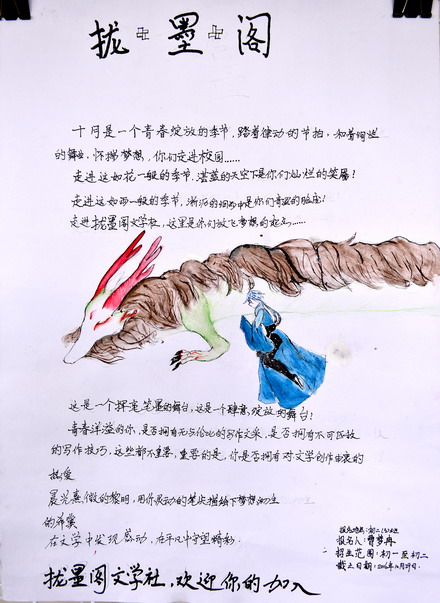 拢墨阁
十月是一个青春绽放的季节,踏着律动的节拍,和着绚烂
的舞曲,怀揣梦想,你们走进校园……
走进这如花一般的季节,湛蓝的天空下是你们灿烂的笑靥!
走进这如雨一般的季节,淅沥的细雨中是你们奇迹的脸庞!
走进拢墨阁文学社,这里是你们放飞梦想的起点……
这是一个挥毫笔墨的舞台,这是一个肆意绽放的舞台!
青春洋溢的你,是否拥有无与伦比的写作文采,是否拥有不可匹敌
的写作技巧,这些都不重要,重要的是,你是否拥有对文学创作由衷的
热爱
晨光熹微的黎明,用你灵动的笔尖描绘下梦想
的希冀
在文学中发现感动,在平凡中守望精彩.
报名地点:初二
报名人:曹梦冉
招生范围:初一至初二
截止日期:
拢墨阁文学社,欢迎你的加入